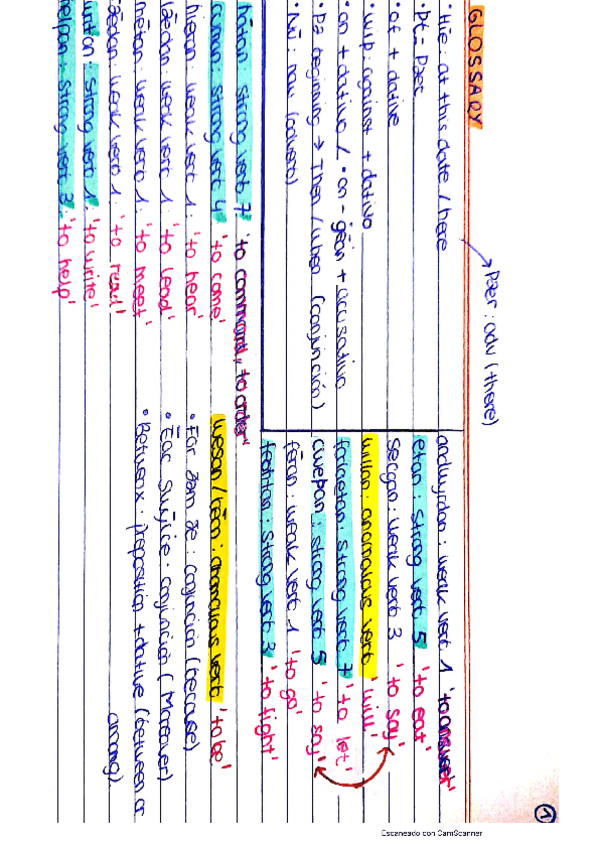 GLOSSARY
①
→ Þaer: adv (there)
• Hie: at this date / here
• Þt = Þaec
• of + dative
• wiþ: against + dativo
• on + dativo / • on-gēan + accusativo
• Þa beginning → Then / when (conjunción)
• Nū: now (adverb)
hātan: strong verb 7: 'to command, to order'
cuman: strong verb 4: 'to come'
hīeran: weak verb 1: 'to hear'
lǣdan: weak verb 1: 'to lead'
mētan: weak verb 1: 'to meet'
rǣdan: weak verb 1: 'to read'
writan: strong verb 1: 'to write'
helpan: strong verb 3: 'to help'
andwyrdan: weak verb 1 'to answer'
etan: strong verb 5 'to eat'
secgan: weak verb 3 'to say'
willan: anomalous verb 'will'
forlaetan: strong verb 7 'to let'
cweþan: strong verb 5 'to say'
fēran: weak verb 1 'to go'
feohtan: strong verb 3 'to fight'
wesan / bēon: anomalous verb 'to be'
• For þam þe: conjunción (because)
• Ēac Swylce: conjunción (Moreover)
• Betweenx: preposition + dative (between or among)
Escaneado con CamScanner